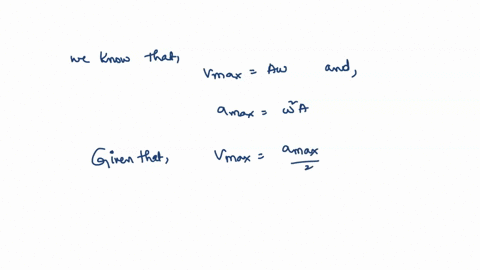 we know that,
Vmax = Aω and,
amax = ω²A
Given that, Vmax = amax/2